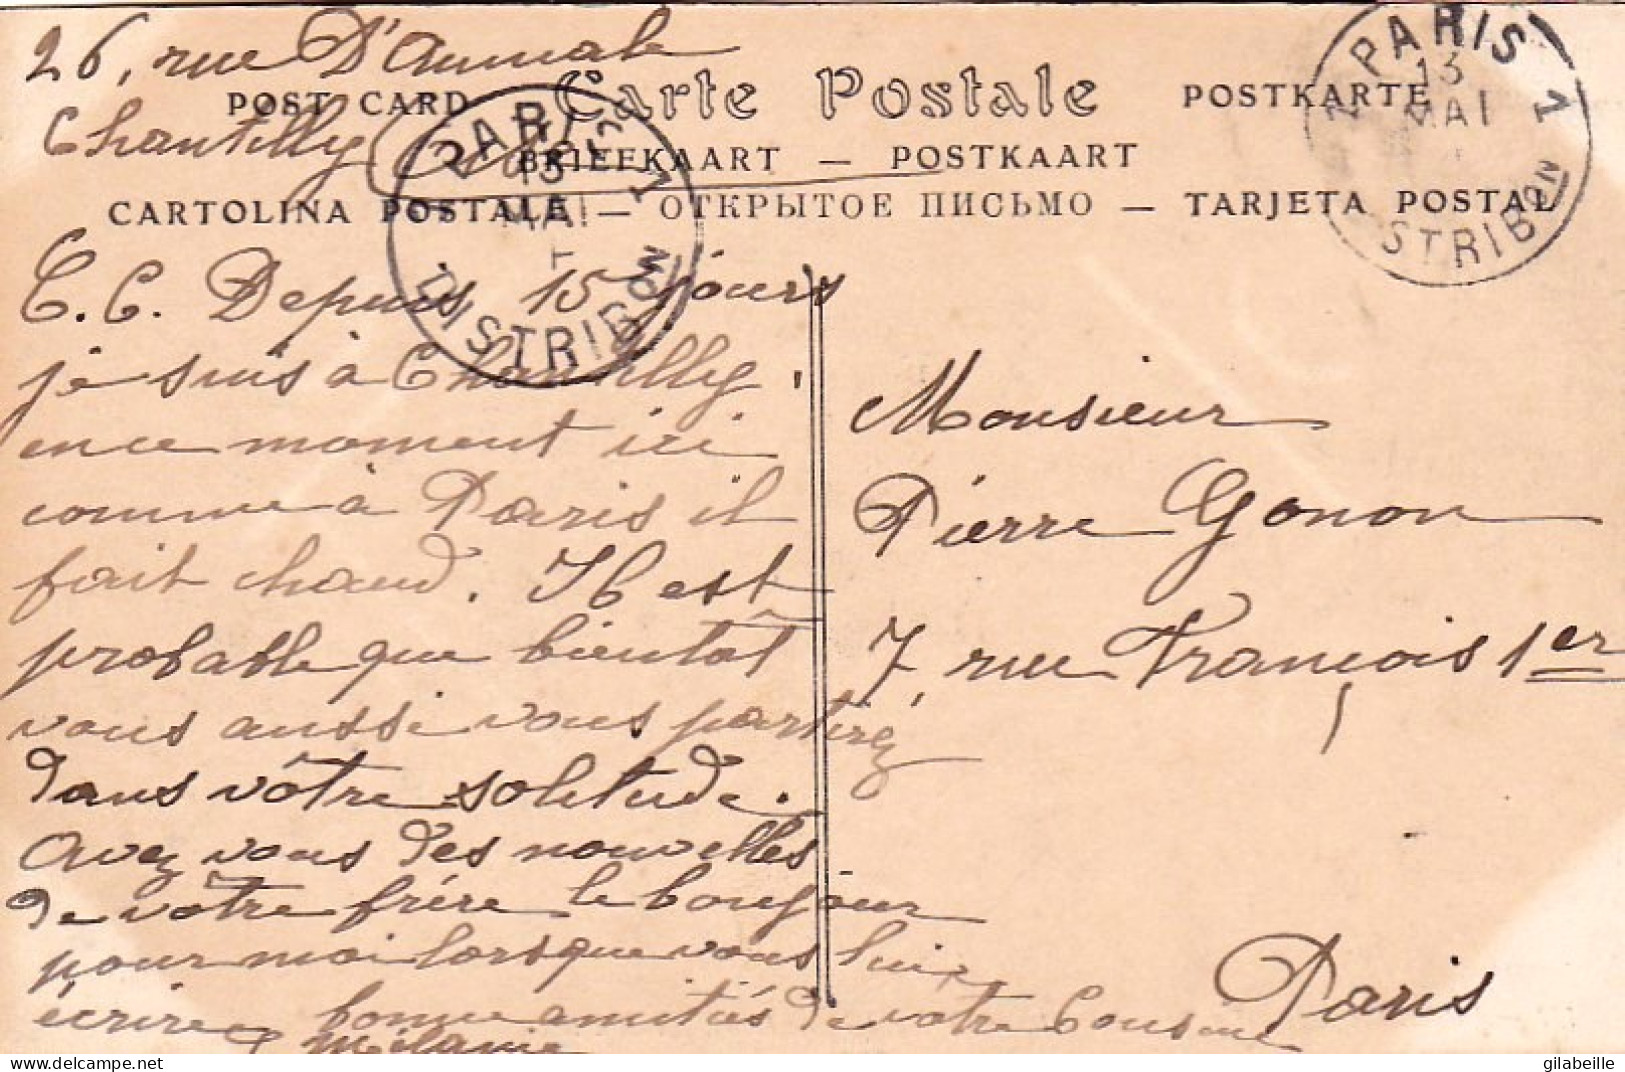 26, rue D'Aumale
Chantilly (Oise)
POST CARD Carte Postale POSTKARTE
BRIEFKAART — POSTKAART
CARTOLINA POSTALE — ОТКРЫТОЕ ПИСЬМО — TARJETA POSTAL
PARIS 1
13
MAI
DISTRIBON
PARIS 1
13
MAI
DISTRIBON
C. C. Depuis 15 jours
je suis à Chantilly.
en ce moment ici
comme à Paris il
fait chaud. Il est
probable que bientôt
vous aussi vous partirez
dans vôtre solitude.
Avez vous des nouvelles
de vôtre frére le bonjour
pour moi lorsque vous lui
écrirez bonne amitiés de vôtre Cousine
Mélanie
Monsieur
Pierre Gonon
7, rue François 1er
Paris
gilabeille